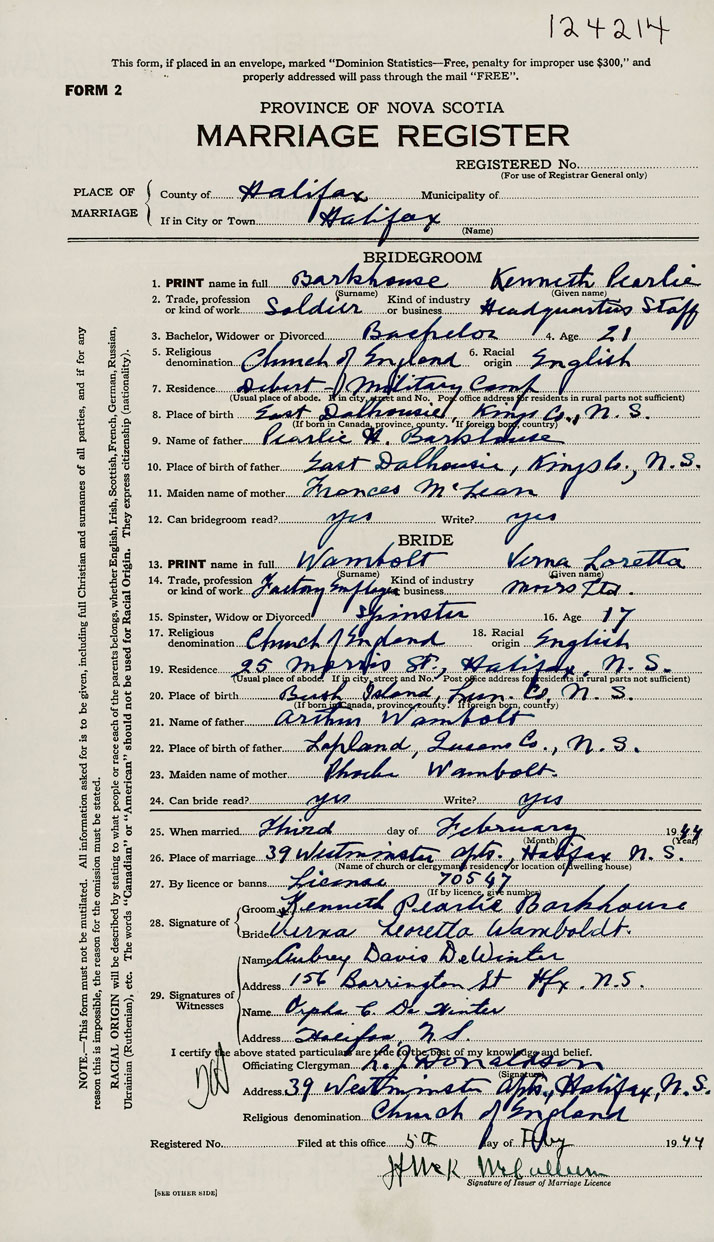 124214
This form, if placed in an envelope, marked "Dominion Statistics—Free, penalty for improper use $300," and
properly addressed will pass through the mail "FREE".
FORM 2
PROVINCE OF NOVA SCOTIA
MARRIAGE REGISTER
REGISTERED No.
(For use of Registrar General only)
PLACE OF MARRIAGE
County of Halifax Municipality of
If in City or Town Halifax
(Name)
BRIDEGROOM
1. PRINT name in full Barkhouse Kenneth Pearlie
(Surname) (Given name)
2. Trade, profession or kind of work Soldier Kind of industry or business Headquarters Staff
3. Bachelor, Widower or Divorced Bachelor 4. Age 21
5. Religious denomination Church of England 6. Racial origin English
7. Residence Debert - Military Camp
(Usual place of abode. If in city, street and No. Post office address for residents in rural parts not sufficient)
8. Place of birth East Dalhousie, Kings Co., N. S.
(If born in Canada, province, county. If foreign born, country)
9. Name of father Pearlie H. Barkhouse
10. Place of birth of father East Dalhousie, Kings Co., N. S.
11. Maiden name of mother Frances McLean
12. Can bridegroom read? yes Write? yes
BRIDE
13. PRINT name in full Wambolt Verna Loretta
(Surname) (Given name)
14. Trade, profession or kind of work Factory Employee Kind of industry or business Moirs Ltd.
15. Spinster, Widow or Divorced Spinster 16. Age 17
17. Religious denomination Church of England 18. Racial origin English
19. Residence 25 Morris St., Halifax, N. S.
(Usual place of abode. If in city, street and No. Post office address for residents in rural parts not sufficient)
20. Place of birth Bush Island, Lun. Co., N. S.
(If born in Canada, province, county. If foreign born, country)
21. Name of father Arthur Wambolt
22. Place of birth of father Lapland, Queens Co., N. S.
23. Maiden name of mother Phoebe Wambolt.
24. Can bride read? yes Write? yes
25. When married Third day of February 1944
(Month) (Year)
26. Place of marriage 39 Westminster Apts., Halifax N. S.
(Name of church or clergyman's residence, or location of dwelling house)
27. By licence or banns License 70547
(If by licence, give number)
28. Signature of Groom Kenneth Pearlie Barkhouse
Bride Verna Loretta Wamboldt.
29. Signatures of Witnesses
Name Aubrey Davis DeWinter
Address 156 Barrington St Hfx. N.S.
Name Orpha C. De Winter
Address Halifax, N.S.
I certify the above stated particulars are true to the best of my knowledge and belief.
Officiating Clergyman L. J. Donaldson
(Signature)
Address 39 Westminster Apts., Halifax, N.S.
Religious denomination Church of England
Registered No. Filed at this office 5th day of Feby 1944
Signature of Issuer of Marriage Licence
[SEE OTHER SIDE]
NOTE.—This form must not be mutilated. All information asked for is to be given, including full Christian and surnames of all parties, and if for any
reason this is impossible, the reason for the omission must be stated.
RACIAL ORIGIN will be described by stating to what people or race each of the parents belongs, whether English, Irish, Scottish, French, German, Russian,
Ukrainian (Ruthenian), etc. The words "Canadian" or "American" should not be used for Racial Origin. They express citizenship (nationality).